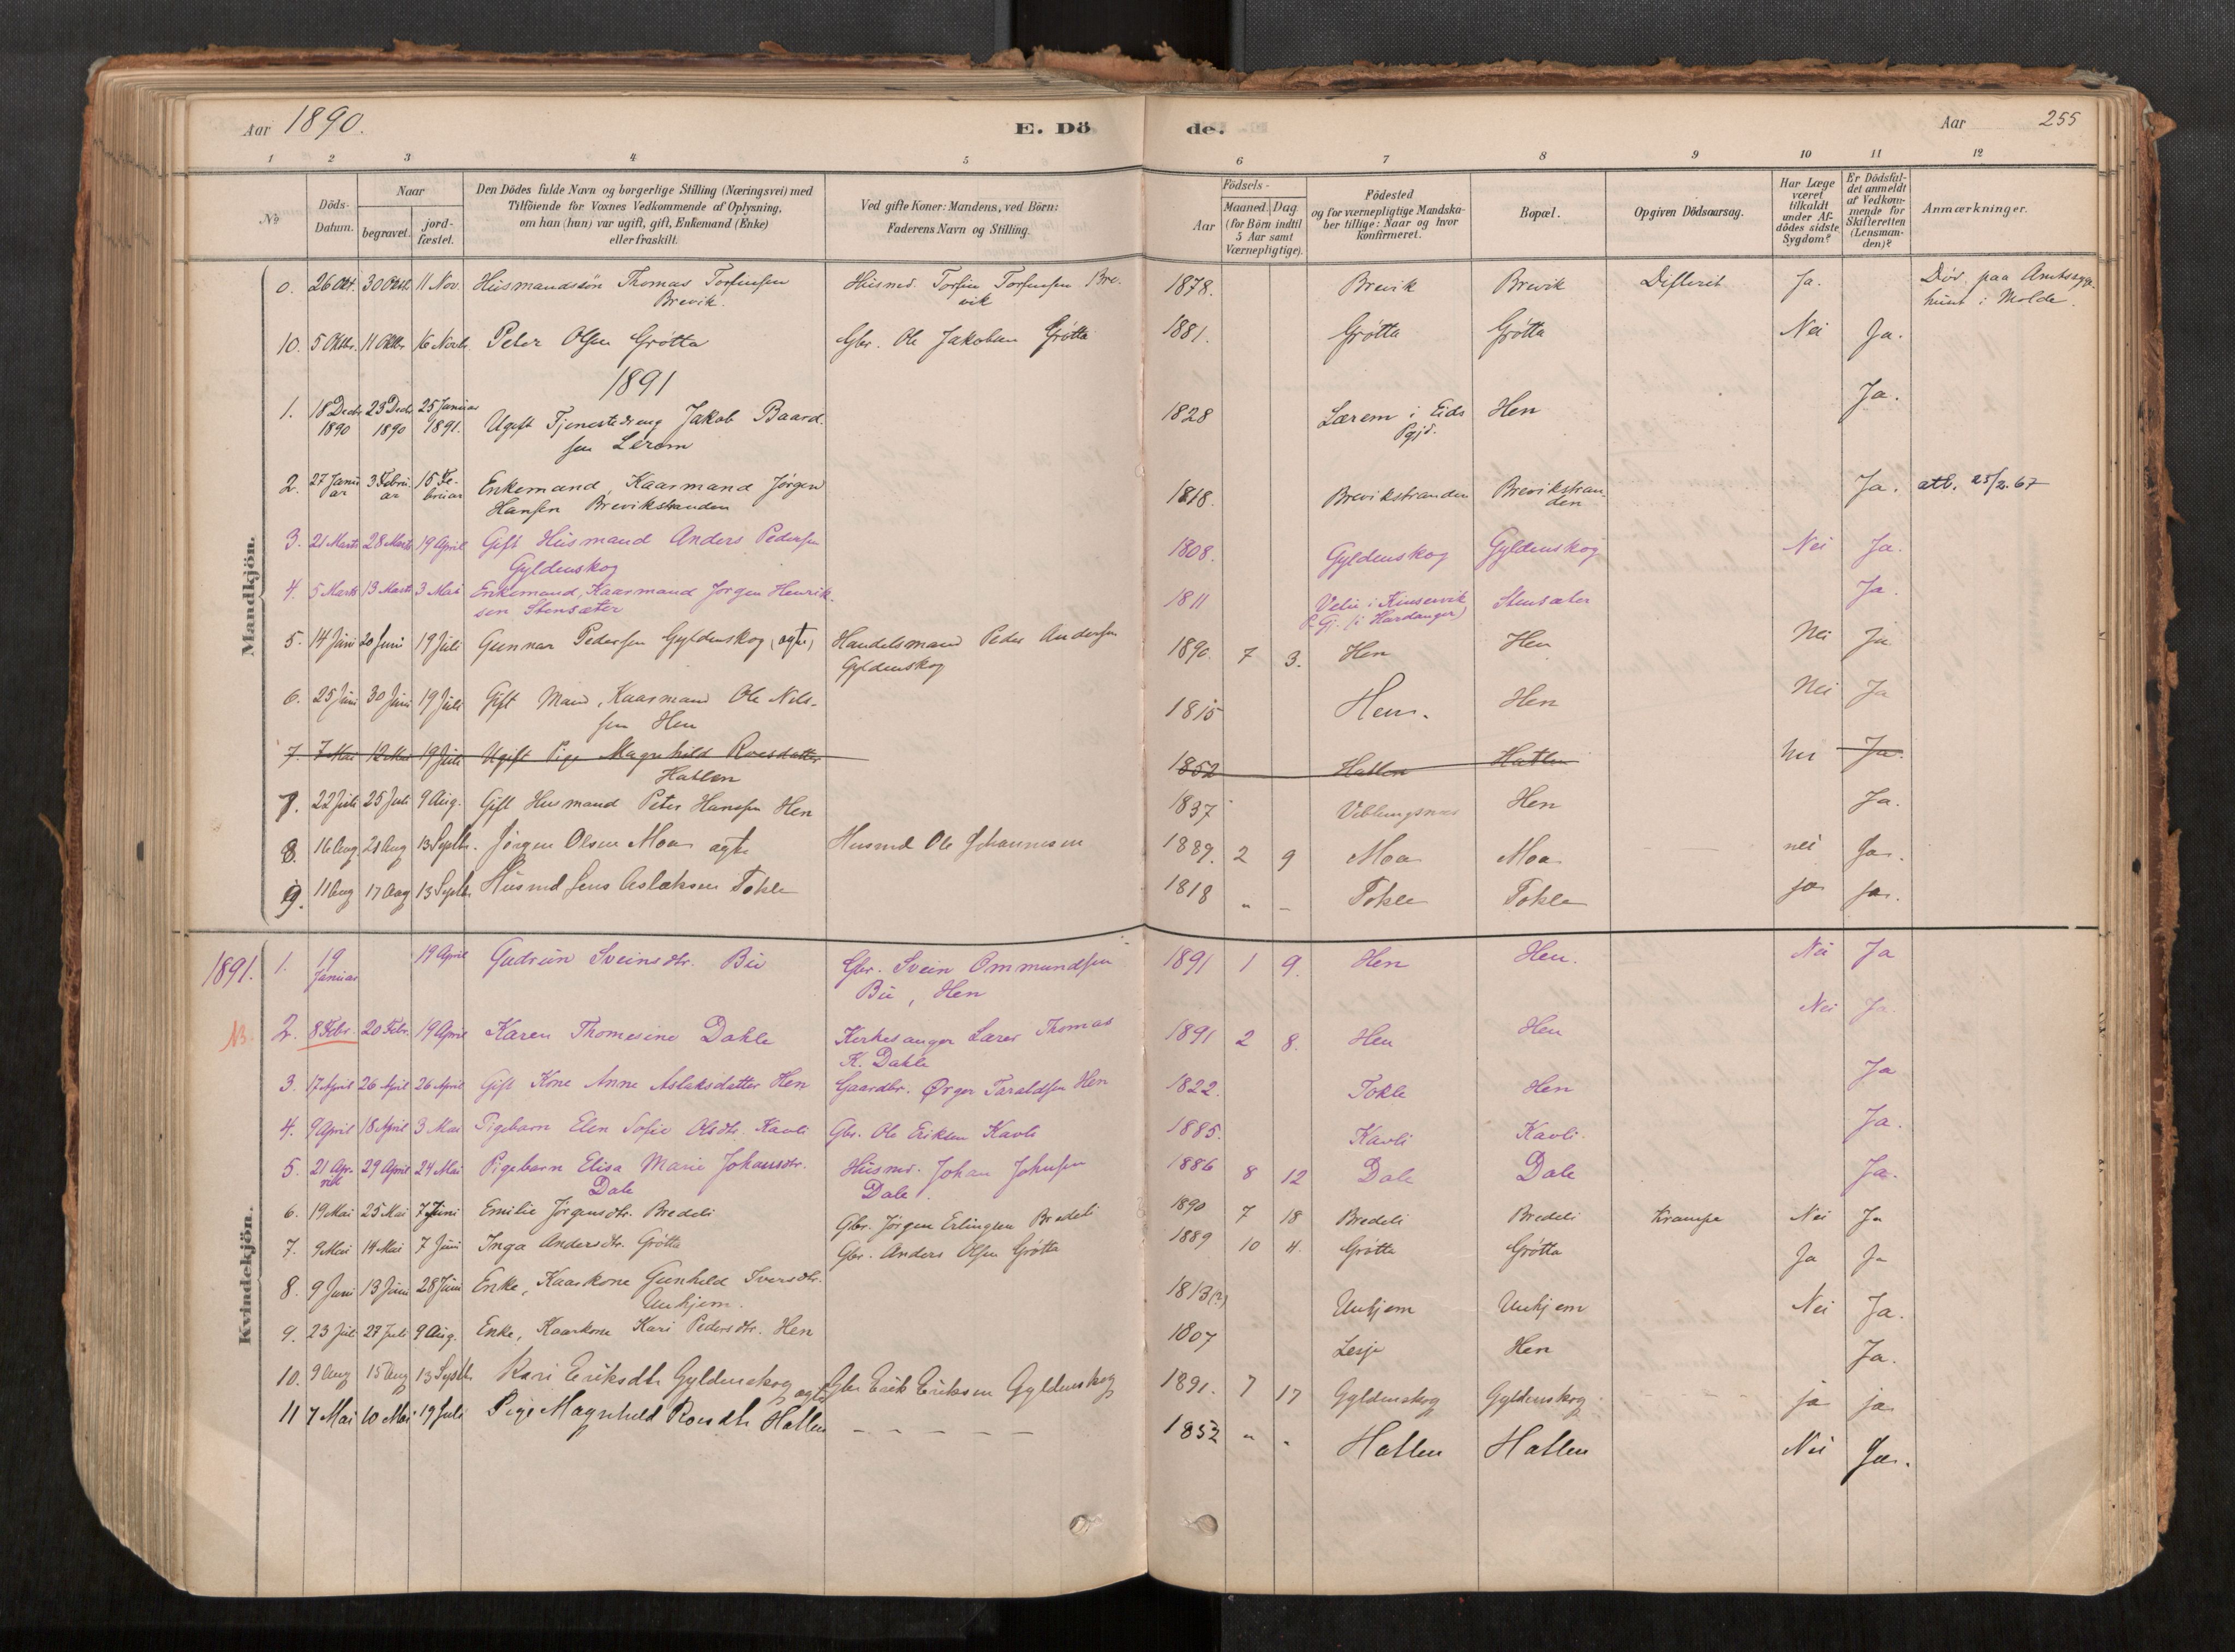 Aar 1890.
E. Dö
de.
Aar
255
1 2 3 4 5 6 7 8 9 10 11 12
No
Döds-
Datum.
Naar
begravet.
jord-
fæstet.
Den Dödes fulde Navn og borgerlige Stilling (Næringsvei) med
Tilföiende for Voxnes Vedkommende af Oplysning,
om han (hun) var ugift, gift, Enkemand (Enke)
eller fraskilt.
Ved gifte Koner: Mandens, ved Börn:
Faderens Navn og Stilling.
Födsels-
Aar
Maaned. Dag
(for Börn indtil
5 Aar samt
Værnepligtige).
Födested
og for værnepligtige Mandska-
ber tillige: Naar og hvor
konfirmeret.
Bopæl.
Opgiven Dödsaarsag.
Har Læge
været
tilkaldt
under Af-
dödes sidste
Sygdom?
Er Dödsfal-
det anmeldt
af Vedkom-
mende for
Skifteretten
(Lensman-
den)?
Anmærkninger.
Mandkjön.
0. 26 Okt. 30 Oktb. 11 Nov. Husmandssön Thomas Torfinsen Husmd. Torfin Torfinsen Bre- 1878. Brevik Brevik Difterit Ja. Död paa Amtssyge-
Brevik. vik huset i Molde.
10. 5 Oktbr. 11 Oktbr. 16 Novb. Peter Olsen Grøtta Gbr. Ole Jakobsen Grøtta 1881. Grøtta Grøtta Nei Ja.
1891
1. 18 Decbr 23 Decbr 25 Januar Ugift Tjenestedreng Jakob Baard- 1828 Lærem i Eids Hen Ja.
1890 1890 1891. sen Lerem Pgjd.
2. 27 Janu 3 Febru 15 Fe- Enkemand, Kaarmand Jørgen 1818. Brevikstranden Brevikstran Ja. attb. 25/2. 67
ar ar bruar Hansen Brevikstranden den
3. 21 Marts 28 Marts 19 April Gift Husmand Anders Pedersen 1808. Gyldenskog Gyldenskog Nei Ja.
Gyldenskog
4. 5 Marts 13 Marts 3 Mai Enkemand, Kaarmand Jørgen Henrik- 1811 Velie i Kinservik Stensæter Ja.
sen Stensæter P.Gj. (i Hardanger)
5. 14 Juni 20 Juni 19 Juli Gunnar Pedersen Gyldenskog (ægte) Handelsmand Peder Andersen 1890. 7 3. Hen Hen Nei Ja
Gyldenskog
6. 25 Juni 30 Juni 19 Juli Gift Mand, Kaarmand Ole Nils- 1815 Hen. Hen Nei Ja
sen Hen
7. 7 Mai 12 Mai 19 Juli Ugift Pige Magnhild Roesdatter 1852 Hatlen Hatlen Nei Ja.
Hatlen
7. 22 Juli 25 Juli 9 Aug. Gift Husmand Peter Hansen Hen 1837 Veblungsnes Hen Ja.
8. 16 Aug 21 Aug 13 Septb. Jørgen Olsen Moa ægte Husmd Ole Johannesen 1889. 2 9 Moa Moa nei Ja.
9. 11 Aug 17 Aug 13 Septb. Husmd Jens Aslaksen Tokle 1818 " - Tokle Tokle ja ja.
Kvindekjön.
1891. 1. 19 19 April Gudrun Sveinsdtr. Bu Gbr. Svein Ommundsen 1891 1 9. Hen Hen. Nei Ja
Januar Bu, Hen
NB. 2. 8 Febr. 20 Febr. 19 April Karen Thomesine Dahle Kirkesanger Lærer Thomas 1891 2 8. Hen Hen Nei Ja.
K. Dahle
3. 17 April 26 April 26 April Gift Kone Anne Aslaksdatter Hen Gaardbr. Ørger Taraldsen Hen 1822. Tokle Hen Ja
4. 9 April 18 April 3 Mai Pigebarn Elen Sofie Olsdtr. Kavli Gbr. Ole Eriksen Kavli 1885. Kavli Kavli. Ja.
5. 21 Ap- 29 April 24 Mai Pigebarn Elisa Marie Johansdtr. Husmd. Johan Johnsen 1886 8 12 Dale Dale Ja.
ril Dale Dale.
6. 19 Mai 25 Mai 7 Juni Emilie Jørgensdtr. Bredeli Gbr. Jørgen Erlingsen Bredeli 1890 7 18 Bredeli Bredeli Krampe Nei Ja
7. 9 Mai 14 Mai 7 Juni Inga Andersdtr. Grøtta Gbr. Anders Olsen Grøtta 1889 10 4. Grøtta Grøtta Ja Ja
8. 9 Juni 13 Juni 28 Juni Enke, Kaarkone Gunhild Iversdtr. 1813(?) Unhjem Unhjem Nei Ja.
Unhjem.
9. 23 Juli 27 Juli 9 Aug. Enke, Kaarkone Kari Pedersdtr. Hen 1807 Lesje Hen Ja.
10. 9 Aug 15 Aug 13 Septb. Kari Eriksdtr Gyldenskog ægte Gbr Erik Eriksen Gyldenskog 1891. 7 17 Gyldenskog Gyldenskog ja ja
11 7 Mai 10 Mai 19 Juli Pige Magnhild Roesdtr Hatlen – – – – – 1852 " " Hatlen Hatlen Nei Ja.